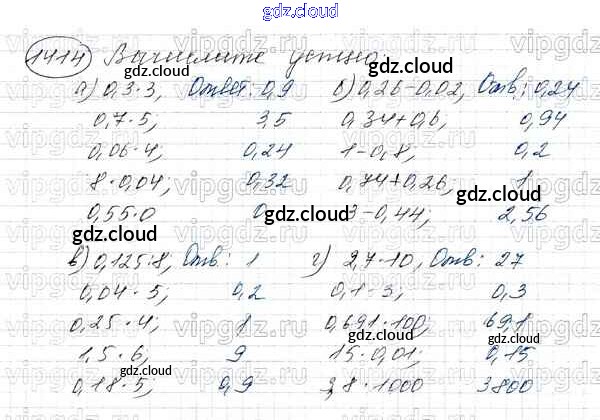 gdz.cloud
1414 Вычислите устно:
а) 0,3·3, Ответ: 0,9 б) 0,26-0,02, Отв: 0,24
0,7·5; 3,5 0,34+0,6, 0,94
0,06·4; 0,24 1-0,8; 0,2
8·0,04; 0,32 0,74+0,26, 1
0,55·0 0 3-0,44; 2,56
в) 0,125·8; Отв: 1 г) 2,7·10, Отв: 27
0,04·5; 0,2 0,1·3; 0,3
0,25·4; 1 0,691·100; 69,1
1,5·6, 9 15·0,01; 0,15
0,18·5; 0,9 3,8·1000 3800